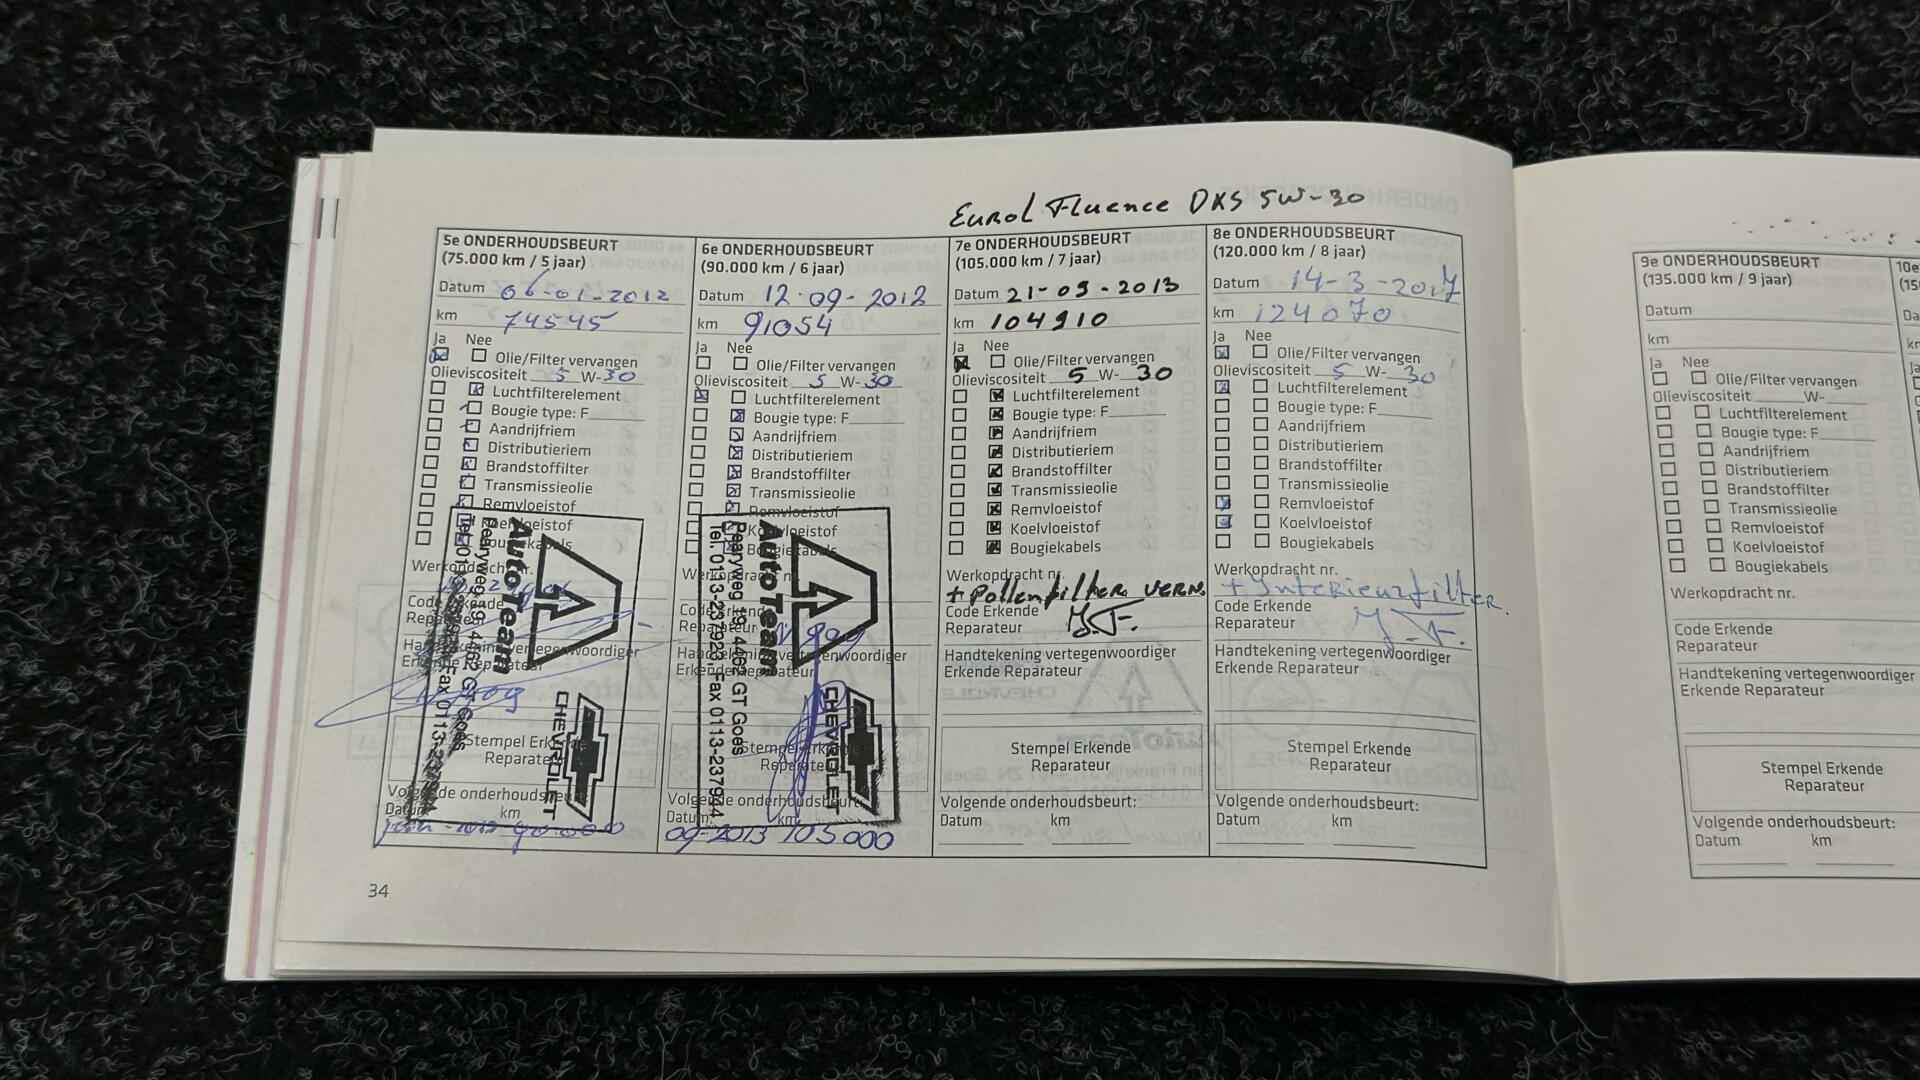 Eurol Fluence DXS 5W-30
5e ONDERHOUDSBEURT
(75.000 km / 5 jaar)
Datum 06-01-2012
km 74545
Ja Nee
Olie/Filter vervangen
Olieviscositeit 5 W-30
Luchtfilterelement
Bougie type: F
Aandrijfriem
Distributieriem
Brandstoffilter
Transmissieolie
Remvloeistof
Koelvloeistof
Bougiekabels
Werkopdracht nr.
Code Erkende
Reparateur
Handtekening vertegenwoordiger
Erkende Reparateur
Stempel Erkende
Reparateur
AutoTeam
Pearyweg 19, 4462 GT Goes
Tel. 0113-237923 Fax 0113-237944
CHEVROLET
Volgende onderhoudsbeurt:
Datum km
2012 90.000
6e ONDERHOUDSBEURT
(90.000 km / 6 jaar)
Datum 12-09-2012
km 91054
Ja Nee
Olie/Filter vervangen
Olieviscositeit 5 W-30
Luchtfilterelement
Bougie type: F
Aandrijfriem
Distributieriem
Brandstoffilter
Transmissieolie
Remvloeistof
Koelvloeistof
Bougiekabels
Werkopdracht nr.
Code Erkende
Reparateur
Handtekening vertegenwoordiger
Erkende Reparateur
Stempel Erkende
Reparateur
AutoTeam
Pearyweg 19, 4462 GT Goes
Tel. 0113-237923 Fax 0113-237944
CHEVROLET
Volgende onderhoudsbeurt:
Datum: km
09-2013 105000
7e ONDERHOUDSBEURT
(105.000 km / 7 jaar)
Datum 21-09-2013
km 104910
Ja Nee
Olie/Filter vervangen
Olieviscositeit 5 W- 30
Luchtfilterelement
Bougie type: F
Aandrijfriem
Distributieriem
Brandstoffilter
Transmissieolie
Remvloeistof
Koelvloeistof
Bougiekabels
Werkopdracht nr.
+ Pollenfilter vern.
Code Erkende
Reparateur
Handtekening vertegenwoordiger
Erkende Reparateur
Stempel Erkende
Reparateur
Volgende onderhoudsbeurt:
Datum km
8e ONDERHOUDSBEURT
(120.000 km / 8 jaar)
Datum 14-3-2017
km 124070
Ja Nee
Olie/Filter vervangen
Olieviscositeit 5 W- 30
Luchtfilterelement
Bougie type: F
Aandrijfriem
Distributieriem
Brandstoffilter
Transmissieolie
Remvloeistof
Koelvloeistof
Bougiekabels
Werkopdracht nr.
+ Interieurfilter.
Code Erkende
Reparateur
Handtekening vertegenwoordiger
Erkende Reparateur
Stempel Erkende
Reparateur
Volgende onderhoudsbeurt:
Datum km
34
9e ONDERHOUDSBEURT
(135.000 km / 9 jaar)
Datum
km
Ja Nee
Olie/Filter vervangen
Olieviscositeit W-
Luchtfilterelement
Bougie type: F
Aandrijfriem
Distributieriem
Brandstoffilter
Transmissieolie
Remvloeistof
Koelvloeistof
Bougiekabels
Werkopdracht nr.
Code Erkende
Reparateur
Handtekening vertegenwoordiger
Erkende Reparateur
Stempel Erkende
Reparateur
Volgende onderhoudsbeurt:
Datum km
10e